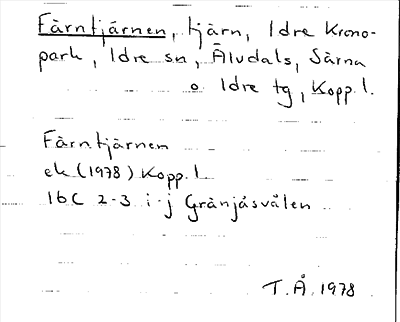 Färntjärnen, tjärn, Idre Krono-
park, Idre sn, Älvdals, Särna
o Idre tg, Kopp. l.
Färntjärnen
ek (1978) Kopp. l.
16C 2-3 i-j Gränjåsvålen
T.Å. 1978